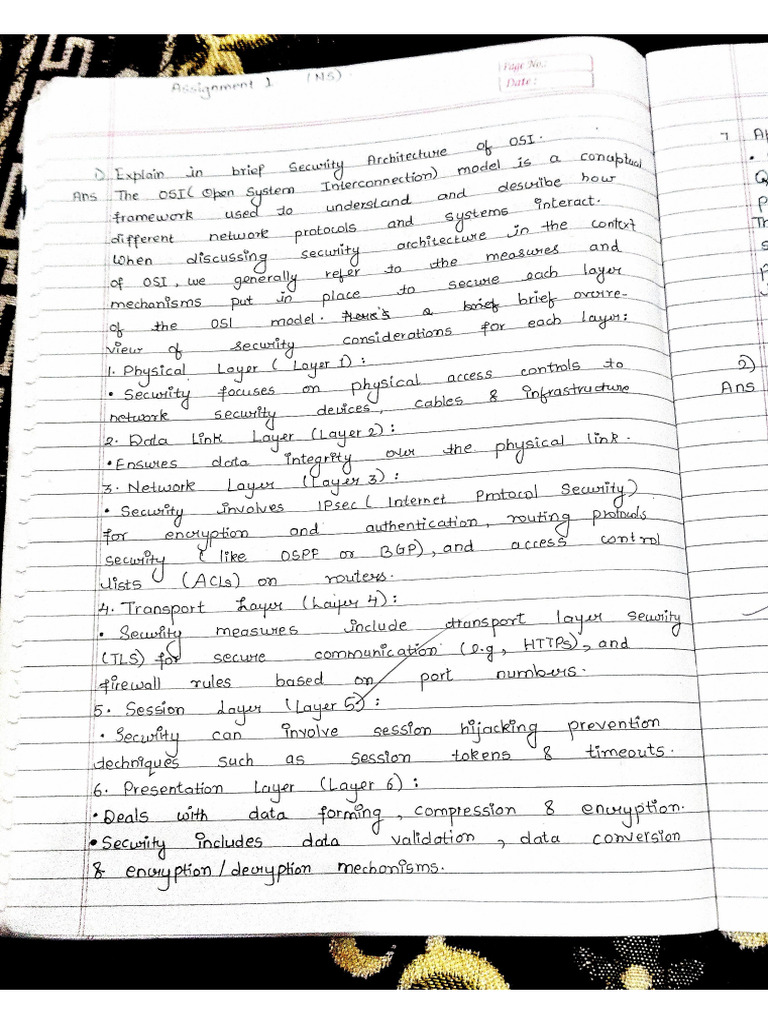 Page No.:
Date:
Assignment 1 (NS).
1) Explain in brief Security Architecture of OSI.
Ans The OSI (Open System Interconnection) model is a conaptual
framework used to understand and describe how
different network protocols and systems interact.
When discussing security architecture in the context
of OSI, we generally refer to the measures and
mechanisms put in place to secure each layer
of the OSI model. Here's a brief brief overre-
view of security considerations for each layer:
1. Physical Layer (Layer 1):
• Security focuses on physical access controls to
network security devices, cables & infrastructure
2. Data Link Layer (Layer 2):
• Ensures data integrity over the physical link.
3. Network Layer (Layer 3):
• Security involves IPsec (Internet Protocol Security)
for encryption and authentication, routing protocols
security (like OSPF or BGP), and access control
lists (ACLs) on routers.
4. Transport Layer (Layer 4):
• Security measures include transport layer security
(TLS) for secure communication (e.g, HTTPs), and
firewall rules based on port numbers.
5. Session Layer (Layer 5):
• Security can involve session hijacking prevention
techniques such as session tokens & timeouts.
6. Presentation Layer (Layer 6):
• Deals with data forming, compression & encryption.
• Security includes data validation, data conversion
& encryption/decryption mechanisms.
2)
Ans